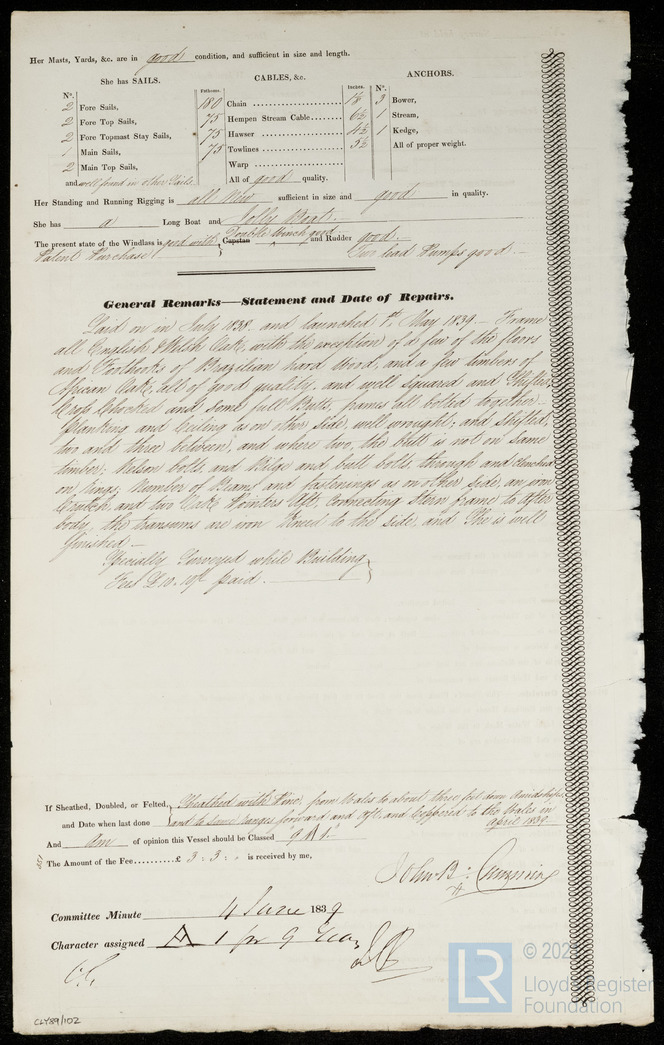 Her Masts, Yards, &c. are in good condition, and sufficient in size and length.
She has SAILS.
CABLES, &c.
ANCHORS.
Nº.
Fathoms.
Inches.
Nº.
2 Fore Sails,
180 Chain 1⅛
3 Bower,
2 Fore Top Sails,
75 Hempen Stream Cable 6½
1 Stream,
2 Fore Topmast Stay Sails,
75 Hawser 4½
1 Kedge,
1 Main Sails,
75 Towlines 3½
All of proper weight.
2 Main Top Sails,
Warp
and well found in other Sails.
All of good quality.
Her Standing and Running Rigging is all New sufficient in size and good in quality.
She has a Long Boat and Jolly Boat.
The present state of the Windlass is good with Capstan Double Winch good and Rudder good.
Patent Purchase
Two lead Pumps good
General Remarks—Statement and Date of Repairs.
Laid on in July 1838 and launched 1st May 1839. Frame
all English & Welsh Oak, with the exception of a few of the floors
and Foothooks of Brazilian hard Wood, and a few timbers of
African Oak, all of good quality, and well squared and
Chocked and some full Butts, frames all bolted together
Planking and Ceiling as on other side, well wrought; and shifted,
two and three between, and where two, the butt is not on same
timber; Kelson bolts, and Bilge and butt bolts, through and clenched
on rings, Number of Beams and fastenings as on other side, an iron
Crutch and two Oak Pointers Aft, connecting Stern frame to after
body, the transoms are iron Kneed to the side and She is well
finished
Specially Surveyed while Building
Fees £10. paid.
If Sheathed, Doubled, or Felted, Sheathed with Pine, from Wales to about three feet down Amidships,
and Date when last done and to some ranges forward and aft, and Coppered to the Wales in
April 1839.
And Am of opinion this Vessel should be Classed "9 A 1."
The Amount of the Fee..........£ 3 : 3 : is received by me,
John B:
Committee Minute 4 June 1839
Character assigned A 1 for 9 Years
CLY89/102
LR
Lloyd's Register
Foundation